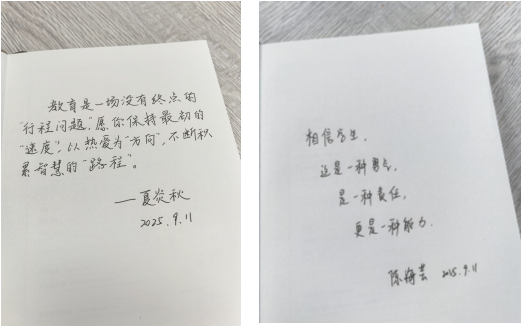 教育是一场没有终点的
“行程问题”,愿你保持最初的
“速度”,以热爱为“方向”,不断积
累智慧的“路程”。
——夏炎秋
2025.9.11
相信学生,
这是一种勇气,
是一种责任,
更是一种能力.
陈海芸 2025.9.11